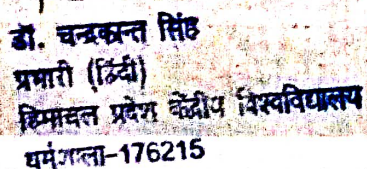 डॉ. चन्द्रकान्त सिंह
प्रभारी (हिंदी)
हिमाचल प्रदेश केंद्रीय विश्वविद्यालय
धर्मशाला-176215